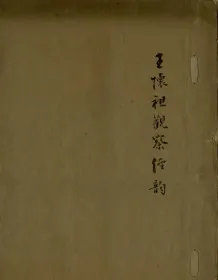 王懷祖觀察經韵